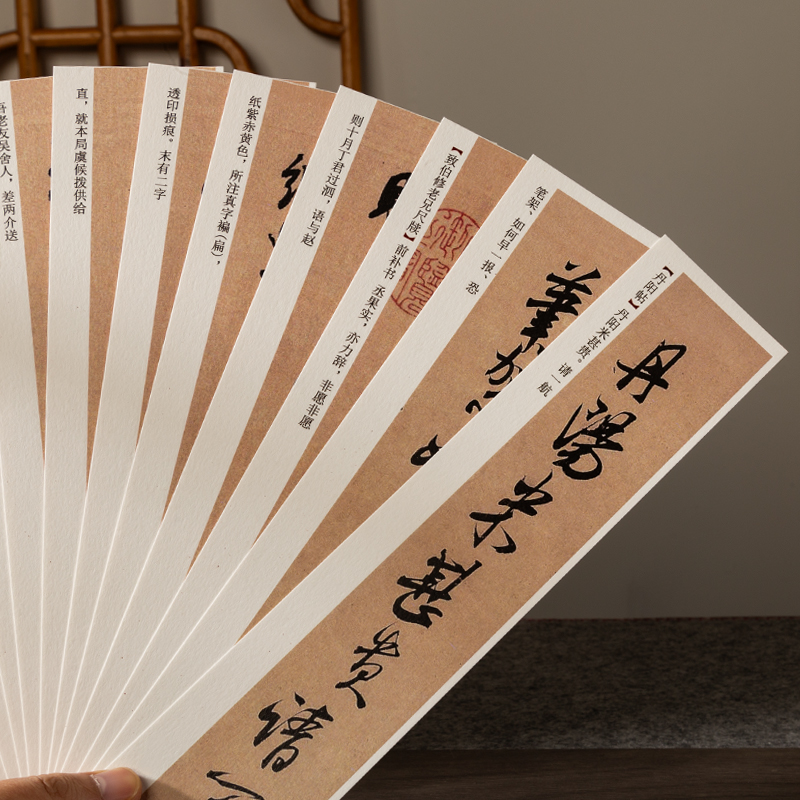 【丹阳帖】丹阳米甚贵。请一航
丹陽米甚貴請
笔架、如何早一报、恐
筆架
【致伯修老兄尺牍】前补书 丞果实，亦力辞，非愿非愿
则十月丁君过泗，语与赵
纸紫赤黄色，所注真字褊（扁），
透印损痕。末有二字
直，就本局虞候拨供给
老友吴舍人，差两介送